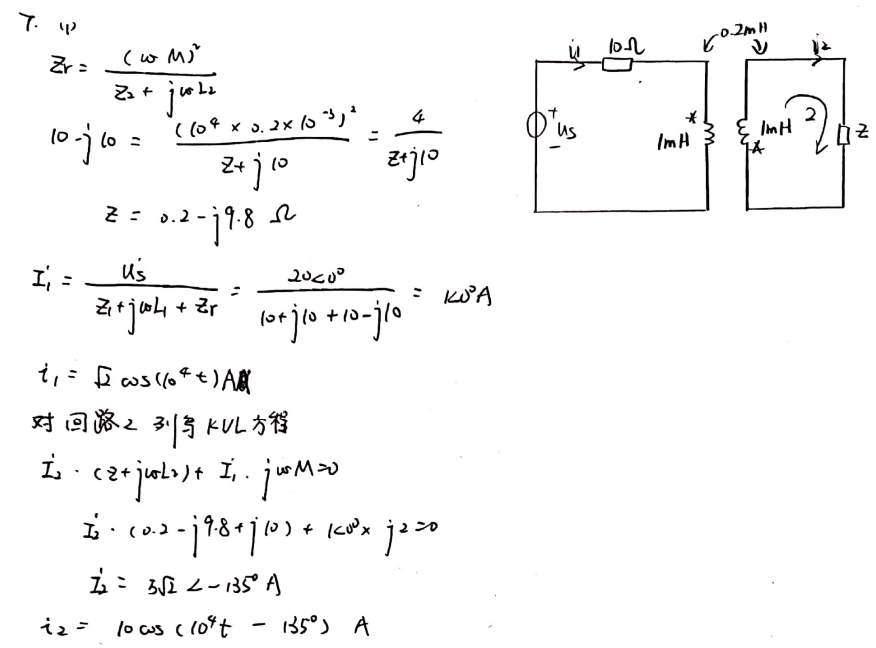 7. (1)
Zr = (ωM)² / (Z2 + jωL2)
10-j10 = (10⁴ × 0.2×10⁻³)² / (Z+j10) = 4 / (Z+j10)
Z = 0.2-j9.8 Ω
İ1 = U̇s / (Z1+jωL1+Zr) = 20<0° / (10+j10+10-j10) = 1<0°A
i1 = √2 cos(10⁴t)A
对回路2列写KVL方程
İ2 · (Z+jωL2) + İ1 · jωM=0
İ2 · (0.2-j9.8+j10) + 1<0°× j2=0
İ2 = 5√2 ∠-135° A
i2 = 10cos(10⁴t - 135°) A
i1 10Ω 0.2mH i2
+ Us - 1mH * 1mH * 2 Z